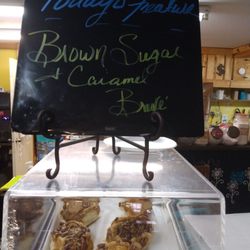 Today's Feature
Brown Sugar
+ Caramel
Bravé